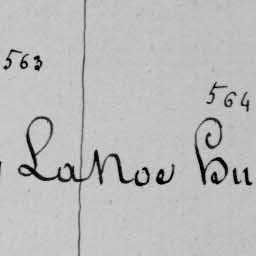 563
564
LaNoe